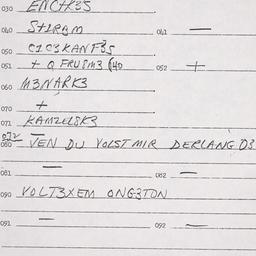 030 ENCTR3S
040 STIRBM 041 —
050 C1C3KANF3S
051 + Q FRUSM3 (40 052 +
060 M3NARK3
070 +
071 KAMZELSK3
072 —
080 VEN DU VOLST MIR DERLANG D3
081 — 082 —
090 VOLT3XEM ONG3TON
091 — 092 —